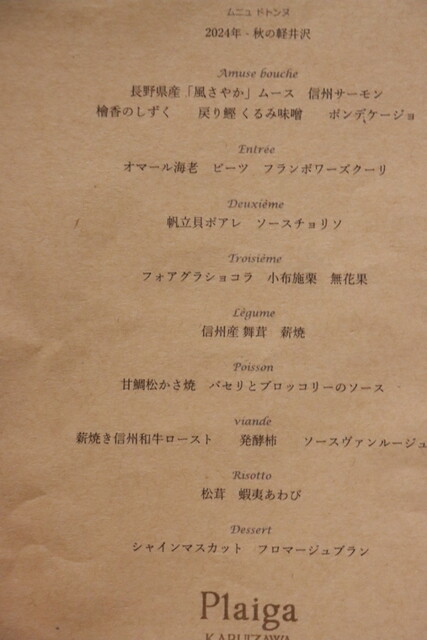 ムニュ ドトンヌ
2024年、秋の軽井沢
Amuse bouche
長野県産「風さやか」ムース　信州サーモン
檜香のしずく　戻り鰹 くるみ味噌　ポンデケージョ
Entrée
オマール海老　ビーツ　フランボワーズクーリ
Deuxiéme
帆立貝ポアレ　ソースチョリソ
Troisiéme
フォアグラショコラ　小布施栗　無花果
Légume
信州産 舞茸　薪焼
Poisson
甘鯛松かさ焼　パセリとブロッコリーのソース
viande
薪焼き信州和牛ロースト　発酵柿　ソースヴァンルージュ
Risotto
松茸　蝦夷あわび
Dessert
シャインマスカット　フロマージュブラン
Plaiga
KARUIZAWA